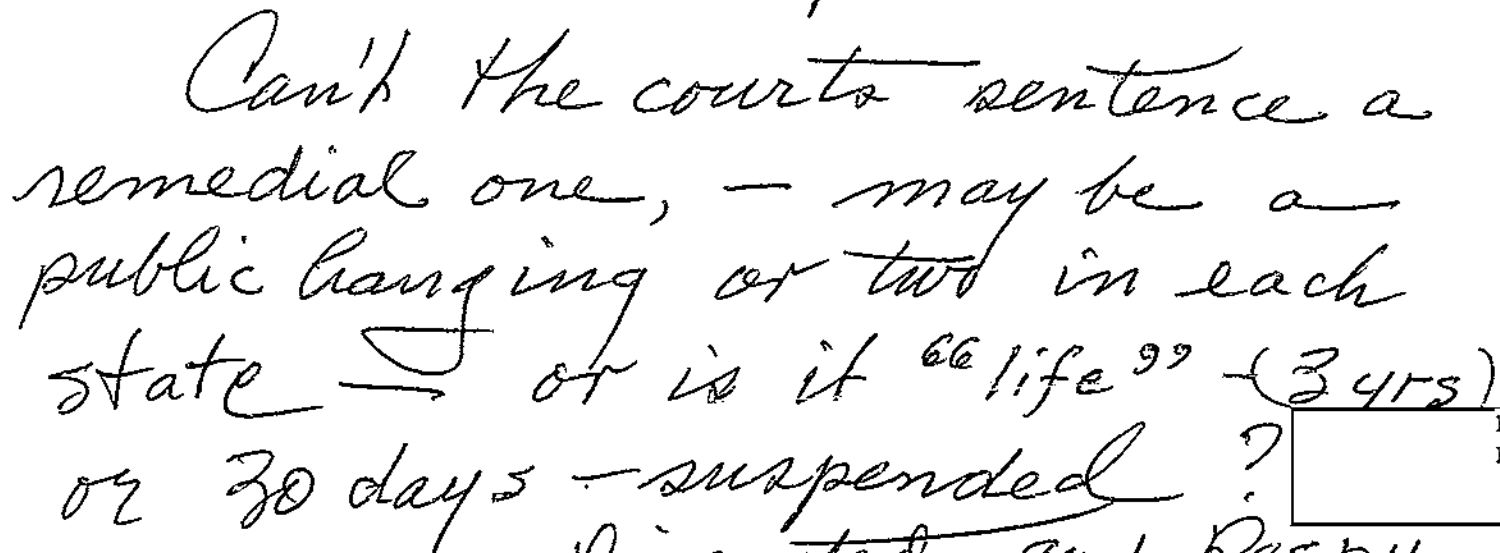 Can't the courts sentence a
remedial one, — may be a
public hanging or two in each
state — or is it “life” – (3 yrs)
or 30 days – suspended ?
and